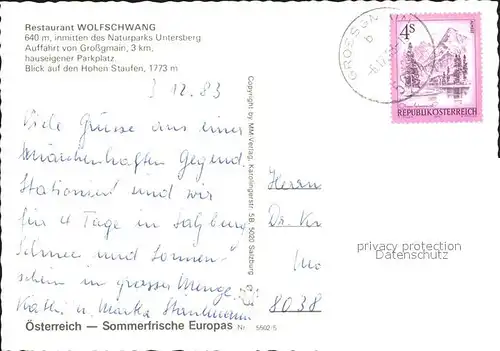 Restaurant WOLFSCHWANG
640 m, inmitten des Naturparks Untersberg
Auffahrt von Großgmain, 3 km,
hauseigener Parkplatz.
Blick auf den Hohen Staufen, 1773 m
3 12.83
Viele Grüsse aus einer
märchenhaften Gegend.
Stationiert sind wir
für 4 Tage in Salzburg
Schnee und Sonnen-
schein in grosser Menge.
Kathi u. Marka
Österreich — Sommerfrische Europas Nr. 5502/5
Copyright by MM-Verlag, Karolingerstr. 5B, 5020 Salzburg
GROESSGMAIN
b
4S
REPUBLIK ÖSTERREICH
Herrn
Dr.
8038
privacy protection
Datenschutz